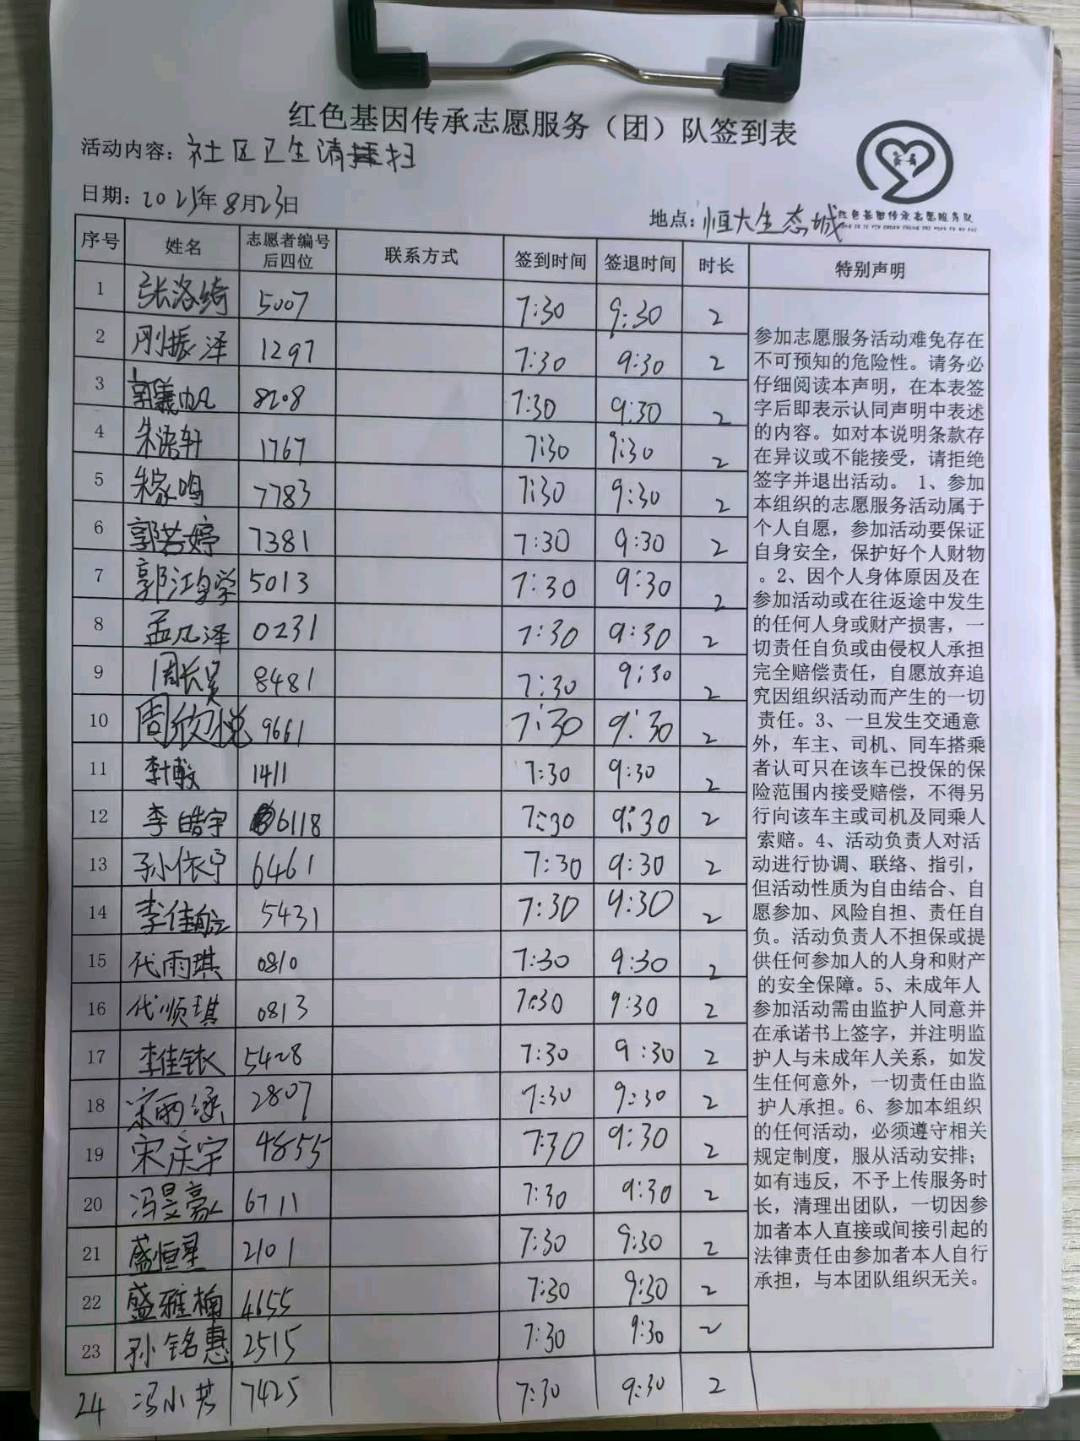 红色基因传承志愿服务（团）队签到表
活动内容：社区卫生清扫
日期：2025年8月23日
地点：恒大生态城
红色基因传承志愿服务队
序号 姓名 志愿者编号后四位 联系方式 签到时间 签退时间 时长 特别声明
1 张洛绮 5007 7:30 9:30 2
2 刚振泽 1297 7:30 9:30 2
3 郭羲凡 8208 7:30 9:30 2
4 朱洛轩 1767 7:30 9:30 2
5 朱家鸣 7783 7:30 9:30 2
6 郭若婷 7381 7:30 9:30 2
7 郭江学 5013 7:30 9:30 2
8 孟凡泽 0231 7:30 9:30 2
9 周长昊 8481 7:30 9:30 2
10 周欣悦 9661 7:30 9:30 2
11 李敏 1411 7:30 9:30 2
12 李皓宇 6118 7:30 9:30 2
13 孙依宁 6461 7:30 9:30 2
14 李佳航 5431 7:30 9:30 2
15 代雨琪 0810 7:30 9:30 2
16 代顺琪 0813 7:30 9:30 2
17 李佳铱 5428 7:30 9:30 2
18 宋雨涵 2807 7:30 9:30 2
19 宋庆宇 4855 7:30 9:30 2
20 冯昱豪 6711 7:30 9:30 2
21 盛恒星 2101 7:30 9:30 2
22 盛雅楠 4655 7:30 9:30 2
23 孙铭惠 2515 7:30 9:30 2
24 冯小芳 7425 7:30 9:30 2
参加志愿服务活动难免存在
不可预知的危险性。请务必
仔细阅读本声明，在本表签
字后即表示认同声明中表述
的内容。如对本说明条款存
在异议或不能接受，请拒绝
签字并退出活动。 1、参加
本组织的志愿服务活动属于
个人自愿，参加活动要保证
自身安全，保护好个人财物
。2、因个人身体原因及在
参加活动或在往返途中发生
的任何人身或财产损害，一
切责任自负或由侵权人承担
完全赔偿责任，自愿放弃追
究因组织活动而产生的一切
责任。3、一旦发生交通意
外，车主、司机、同车搭乘
者认可只在该车已投保的保
险范围内接受赔偿，不得另
行向该车主或司机及同乘人
索赔。4、活动负责人对活
动进行协调、联络、指引，
但活动性质为自由结合、自
愿参加、风险自担、责任自
负。活动负责人不担保或提
供任何参加人的人身和财产
的安全保障。5、未成年人
参加活动需由监护人同意并
在承诺书上签字，并注明监
护人与未成年人关系，如发
生任何意外，一切责任由监
护人承担。6、参加本组织
的任何活动，必须遵守相关
规定制度，服从活动安排；
如有违反，不予上传服务时
长，清理出团队，一切因参
加者本人直接或间接引起的
法律责任由参加者本人自行
承担，与本团队组织无关。